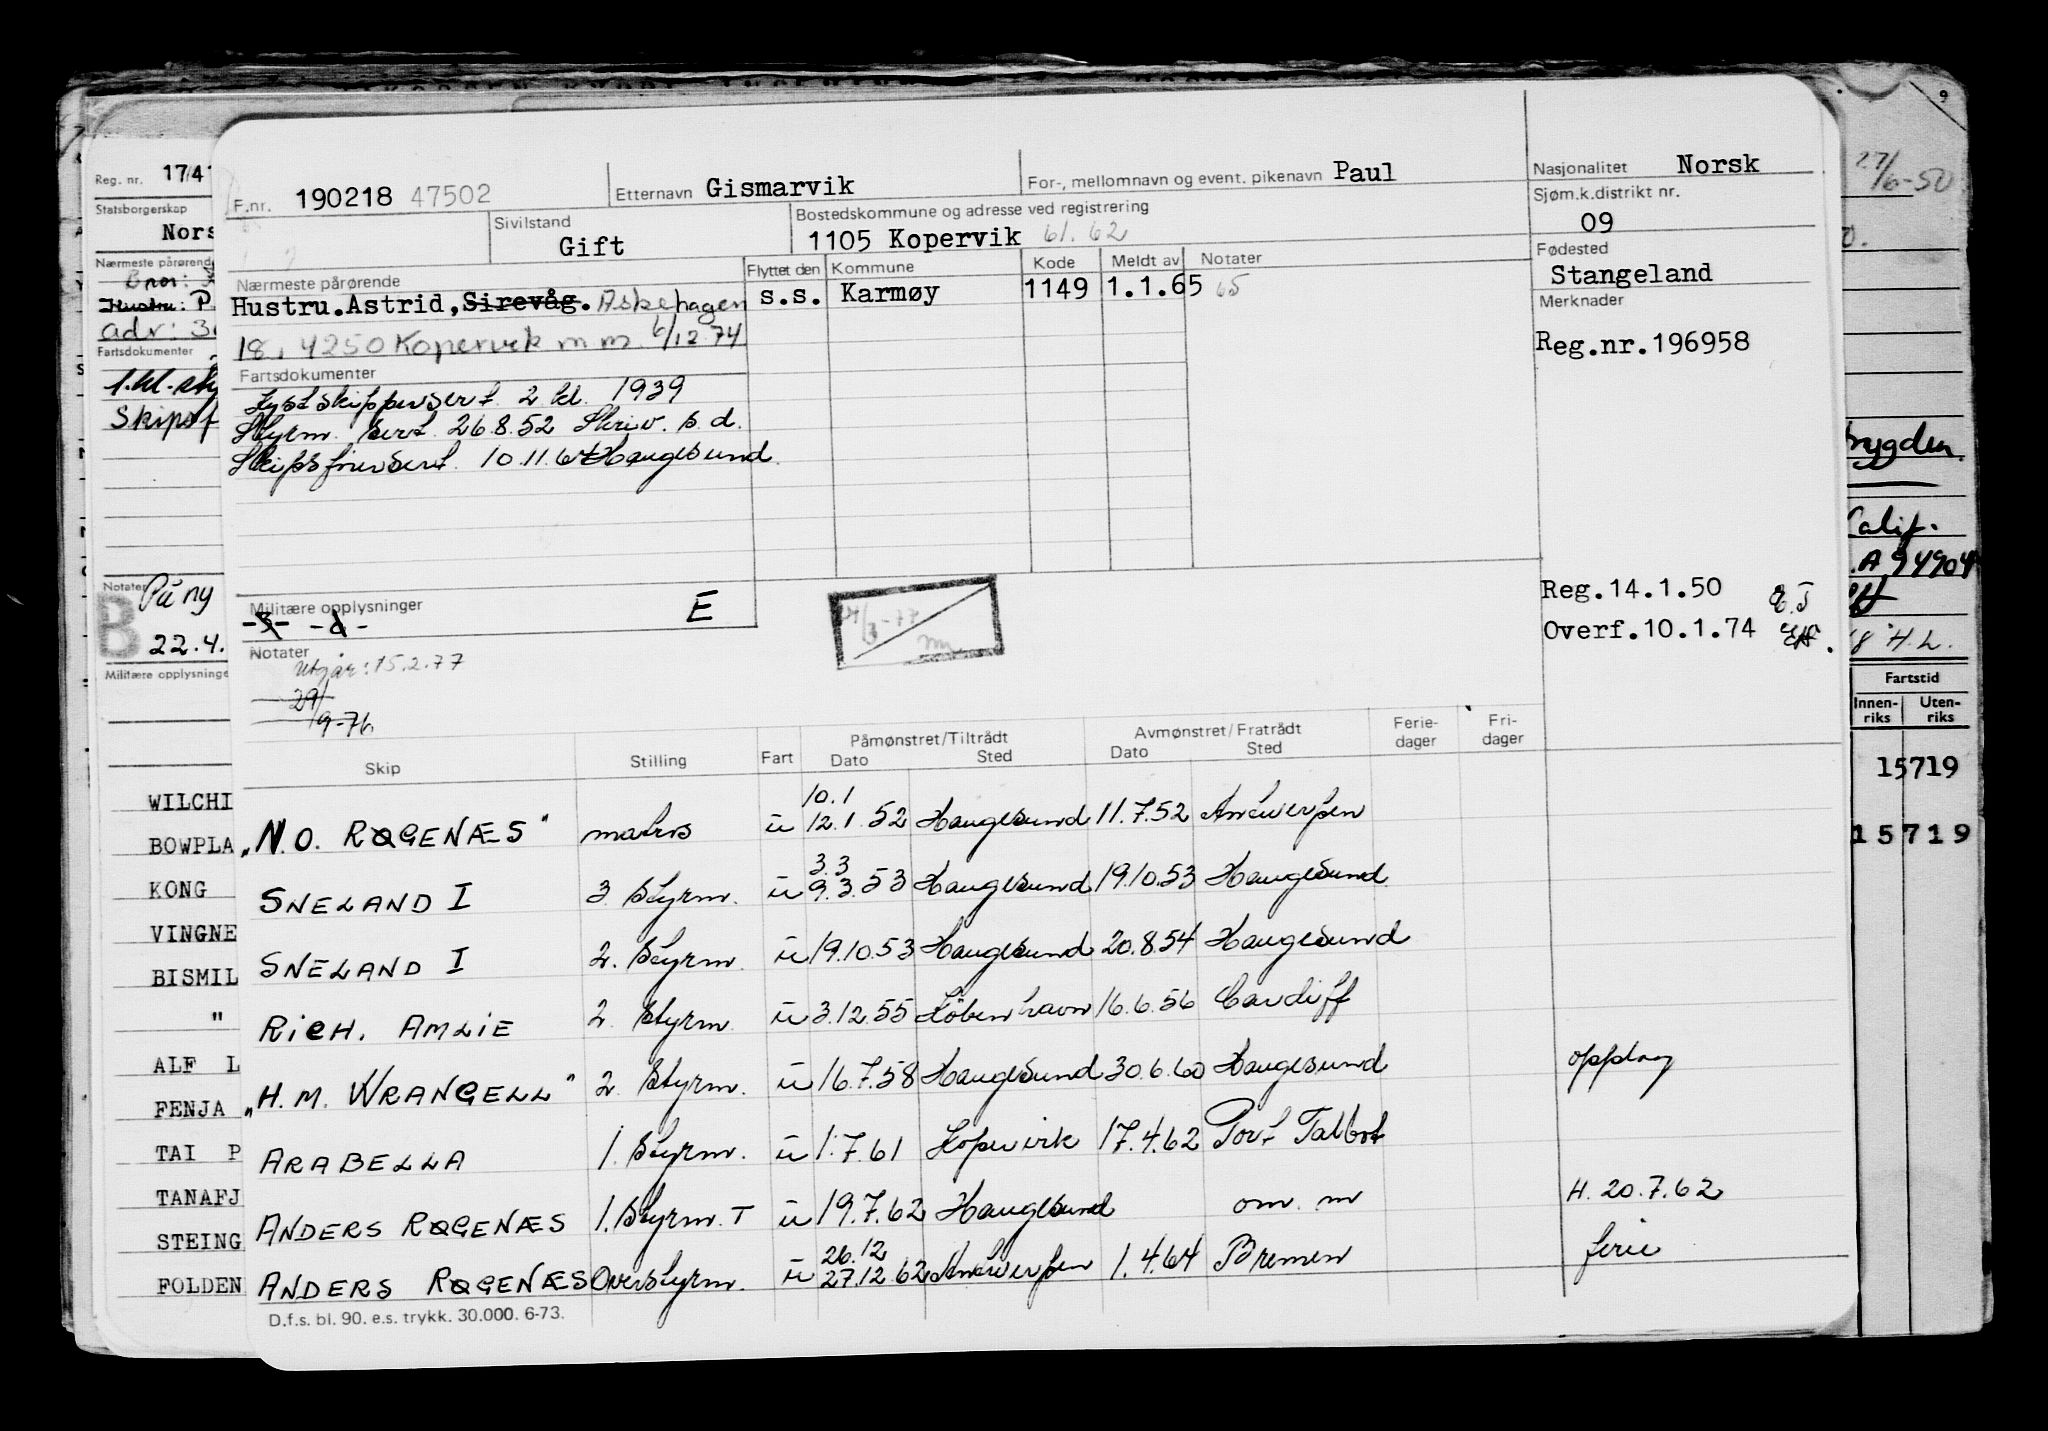 F.nr. 190218 47502 Etternavn Gismarvik For-, mellomnavn og event. pikenavn Paul Nasjonalitet Norsk
Sivilstand Gift Bostedskommune og adresse ved registrering 1105 Kopervik 61. 62 Sjøm.k.distrikt nr. 09
Nærmeste pårørende Flyttet den Kommune Kode Meldt av Notater Fødested Stangeland
Hustru.Astrid, Sirevåg. Askehagen s.s. Karmøy 1149 1.1.65 65 Merknader
18, 4250 Kopervik m m. 6/12.74 Reg.nr.196958
Fartsdokumenter
Kystskippersert. 2 kl. 1939
Styrm. sert. 26.8.52 Skriv. s.d.
Skipsførersert. 10.11.64 Haugesund
Militære opplysninger E Reg.14.1.50
Overf.10.1.74
Notater
Utgår: 15.2.77
29/9-76
Skip Stilling Fart Påmønstret/Tiltrådt Dato Sted Avmønstret/Fratrådt Dato Sted Ferie-dager Fri-dager
10.1
"N.O. ROGENÆS" matros u 12.1.52 Haugesund 11.7.52 Antwerpen
3.3
SNELAND I 3 Styrm. u 9.3.53 Haugesund 19.10.53 Haugesund
SNELAND I 2. Styrm. u 19.10.53 Haugesund 20.8.54 Haugesund
RICH. AMLIE 2. Styrm. u 3.12.55 København 16.6.56 Cardiff
"H.M. WRANGELL" 2. Styrm. u 16.7.58 Haugesund 30.6.60 Haugesund opplag
ARABELLA 1. Styrm. u 1.7.61 Kopervik 17.4.62 Port Talbot
ANDERS ROGENÆS 1. Styrm. T u 19.7.62 Haugesund om. m H. 20.7.62
26.12
ANDERS ROGENÆS Overstyrm. u 27.12.62 Antwerpen 1.4.64 Bremen ferie
D.f.s. bl. 90. e.s. trykk. 30.000. 6-73.
Reg. nr. 1741
Statsborgerskap
Nors
Nærmeste pårørende
Bror:
Hustru: P
adr: 3
Fartsdokumenter
1.kl. sty
Skipsf
Notater På ny
B 22.4.
Militære opplysninge
WILCHI
BOWPLA
KONG
VINGNE
BISMIL
"
ALF L
FENJA
TAI P
TANAFJ
STEING
FOLDEN
9
27/6-50
bygden.
Calif.
.A 94904
8 H.L.
Fartstid
Innen-riks Uten-riks
15719
15719